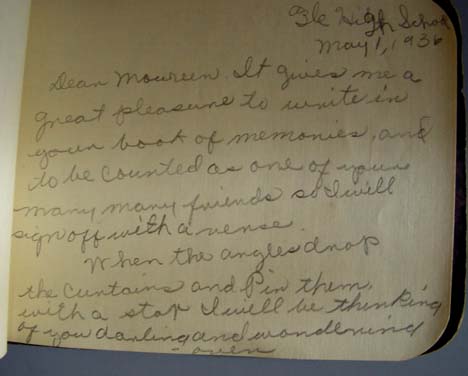 Ile High School
May 1, 1936
Dear Maureen. It gives me a
great pleasure to write in
your book of memories, and
to be counted as one of your
many many friends so I will
sign off with a verse.
When the angles drop
the curtains and Pin them
with a star I will be thinking
of you darling and wondering
- over